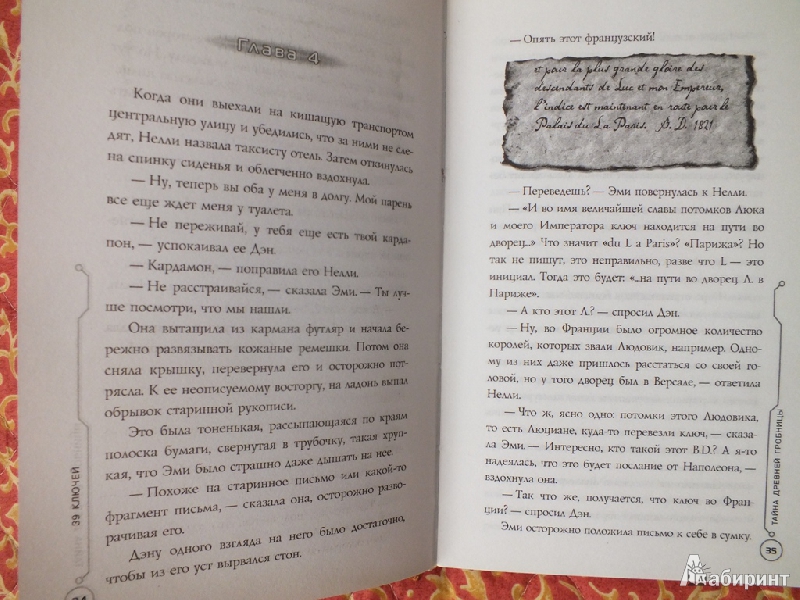 Глава 4
Когда они выехали на кишащую транспортом
центральную улицу и убедились, что за ними не сле-
дят, Нелли назвала таксисту отель. Затем откинулась
на спинку сиденья и облегченно вздохнула.
— Ну, теперь вы оба у меня в долгу. Мой парень
все еще ждет меня у туалета.
— Не переживай, у тебя еще есть твой карда-
пон, — успокаивал ее Дэн.
— Кардамон, — поправила его Нелли.
— Не расстраивайся, — сказала Эми. — Ты луч-
ше посмотри, что мы нашли.
Она вытащила из кармана футляр и начала бе-
режно развязывать кожаные ремешки. Потом она
сняла крышку, перевернула его и осторожно пот-
рясла. К ее неописуемому восторгу, на ладонь выпал
обрывок старинной рукописи.
Это была тоненькая, рассыпающаяся по краям
полоска бумаги, свернутая в трубочку, такая хруп-
кая, что Эми было страшно даже дышать на нее.
— Похоже на старинное письмо или какой-то
фрагмент письма, — сказала она, осторожно разво-
рачивая его.
Дэну одного взгляда на него было достаточно,
чтобы из его уст вырвался стон.
39 КЛЮЧЕЙ
34
— Опять этот французский!
et pour la plus grande gloire des
descendants de Luc et mon Empereur,
l'indice est maintenant en route pour le
Palais du La Paris. 1821
— Переведешь? — Эми повернулась к Нелли.
— «И во имя величайшей славы потомков Люка и
моего Императора ключ находится на пути во
дворец..» Что значит «du L a Paris»? «Парижа»? Но
так не пишут, это неправильно, разве что L — это
инициал. Тогда это будет: «..на пути во дворец Л. в
Париже».
— А кто этот Л.? — спросил Дэн.
— Ну, во Франции было огромное количество
королей, которых звали Людовик, например. Одно-
му из них даже пришлось расстаться со своей го-
ловой, но у того дворец был в Версале, — ответила
Нелли.
— Что ж, ясно одно: потомки этого Людовика,
то есть Люциане, куда-то перевезли ключ, — сказа-
ла Эми. — Интересно, кто такой этот B.D.? А я-то
надеялась, что это будет послание от Наполеона, —
вздохнула она.
— Так что же, получается, что ключ во Фран-
ции? — спросил Дэн.
Эми осторожно положила письмо к себе в сумку.
ТАЙНА ДРЕВНЕЙ ГРОБНИЦЫ
35
Лабиринт